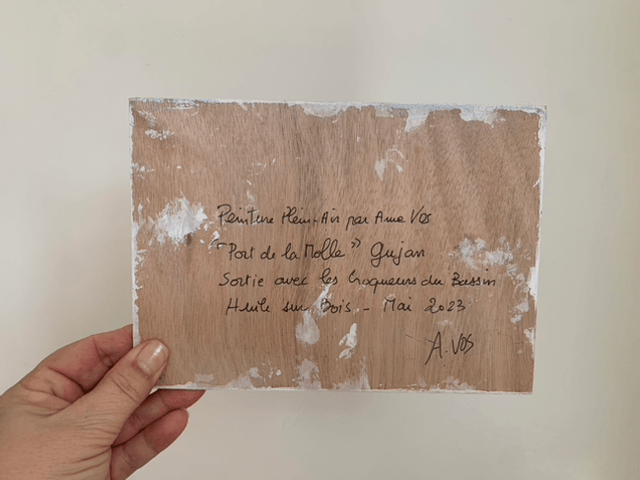 Peinture Plein-Air par Anne Vos
"Port de la Molle" Gujan
Sortie avec les Croqueurs du Bassin
Huile sur Bois - Mai 2023
A. VOS